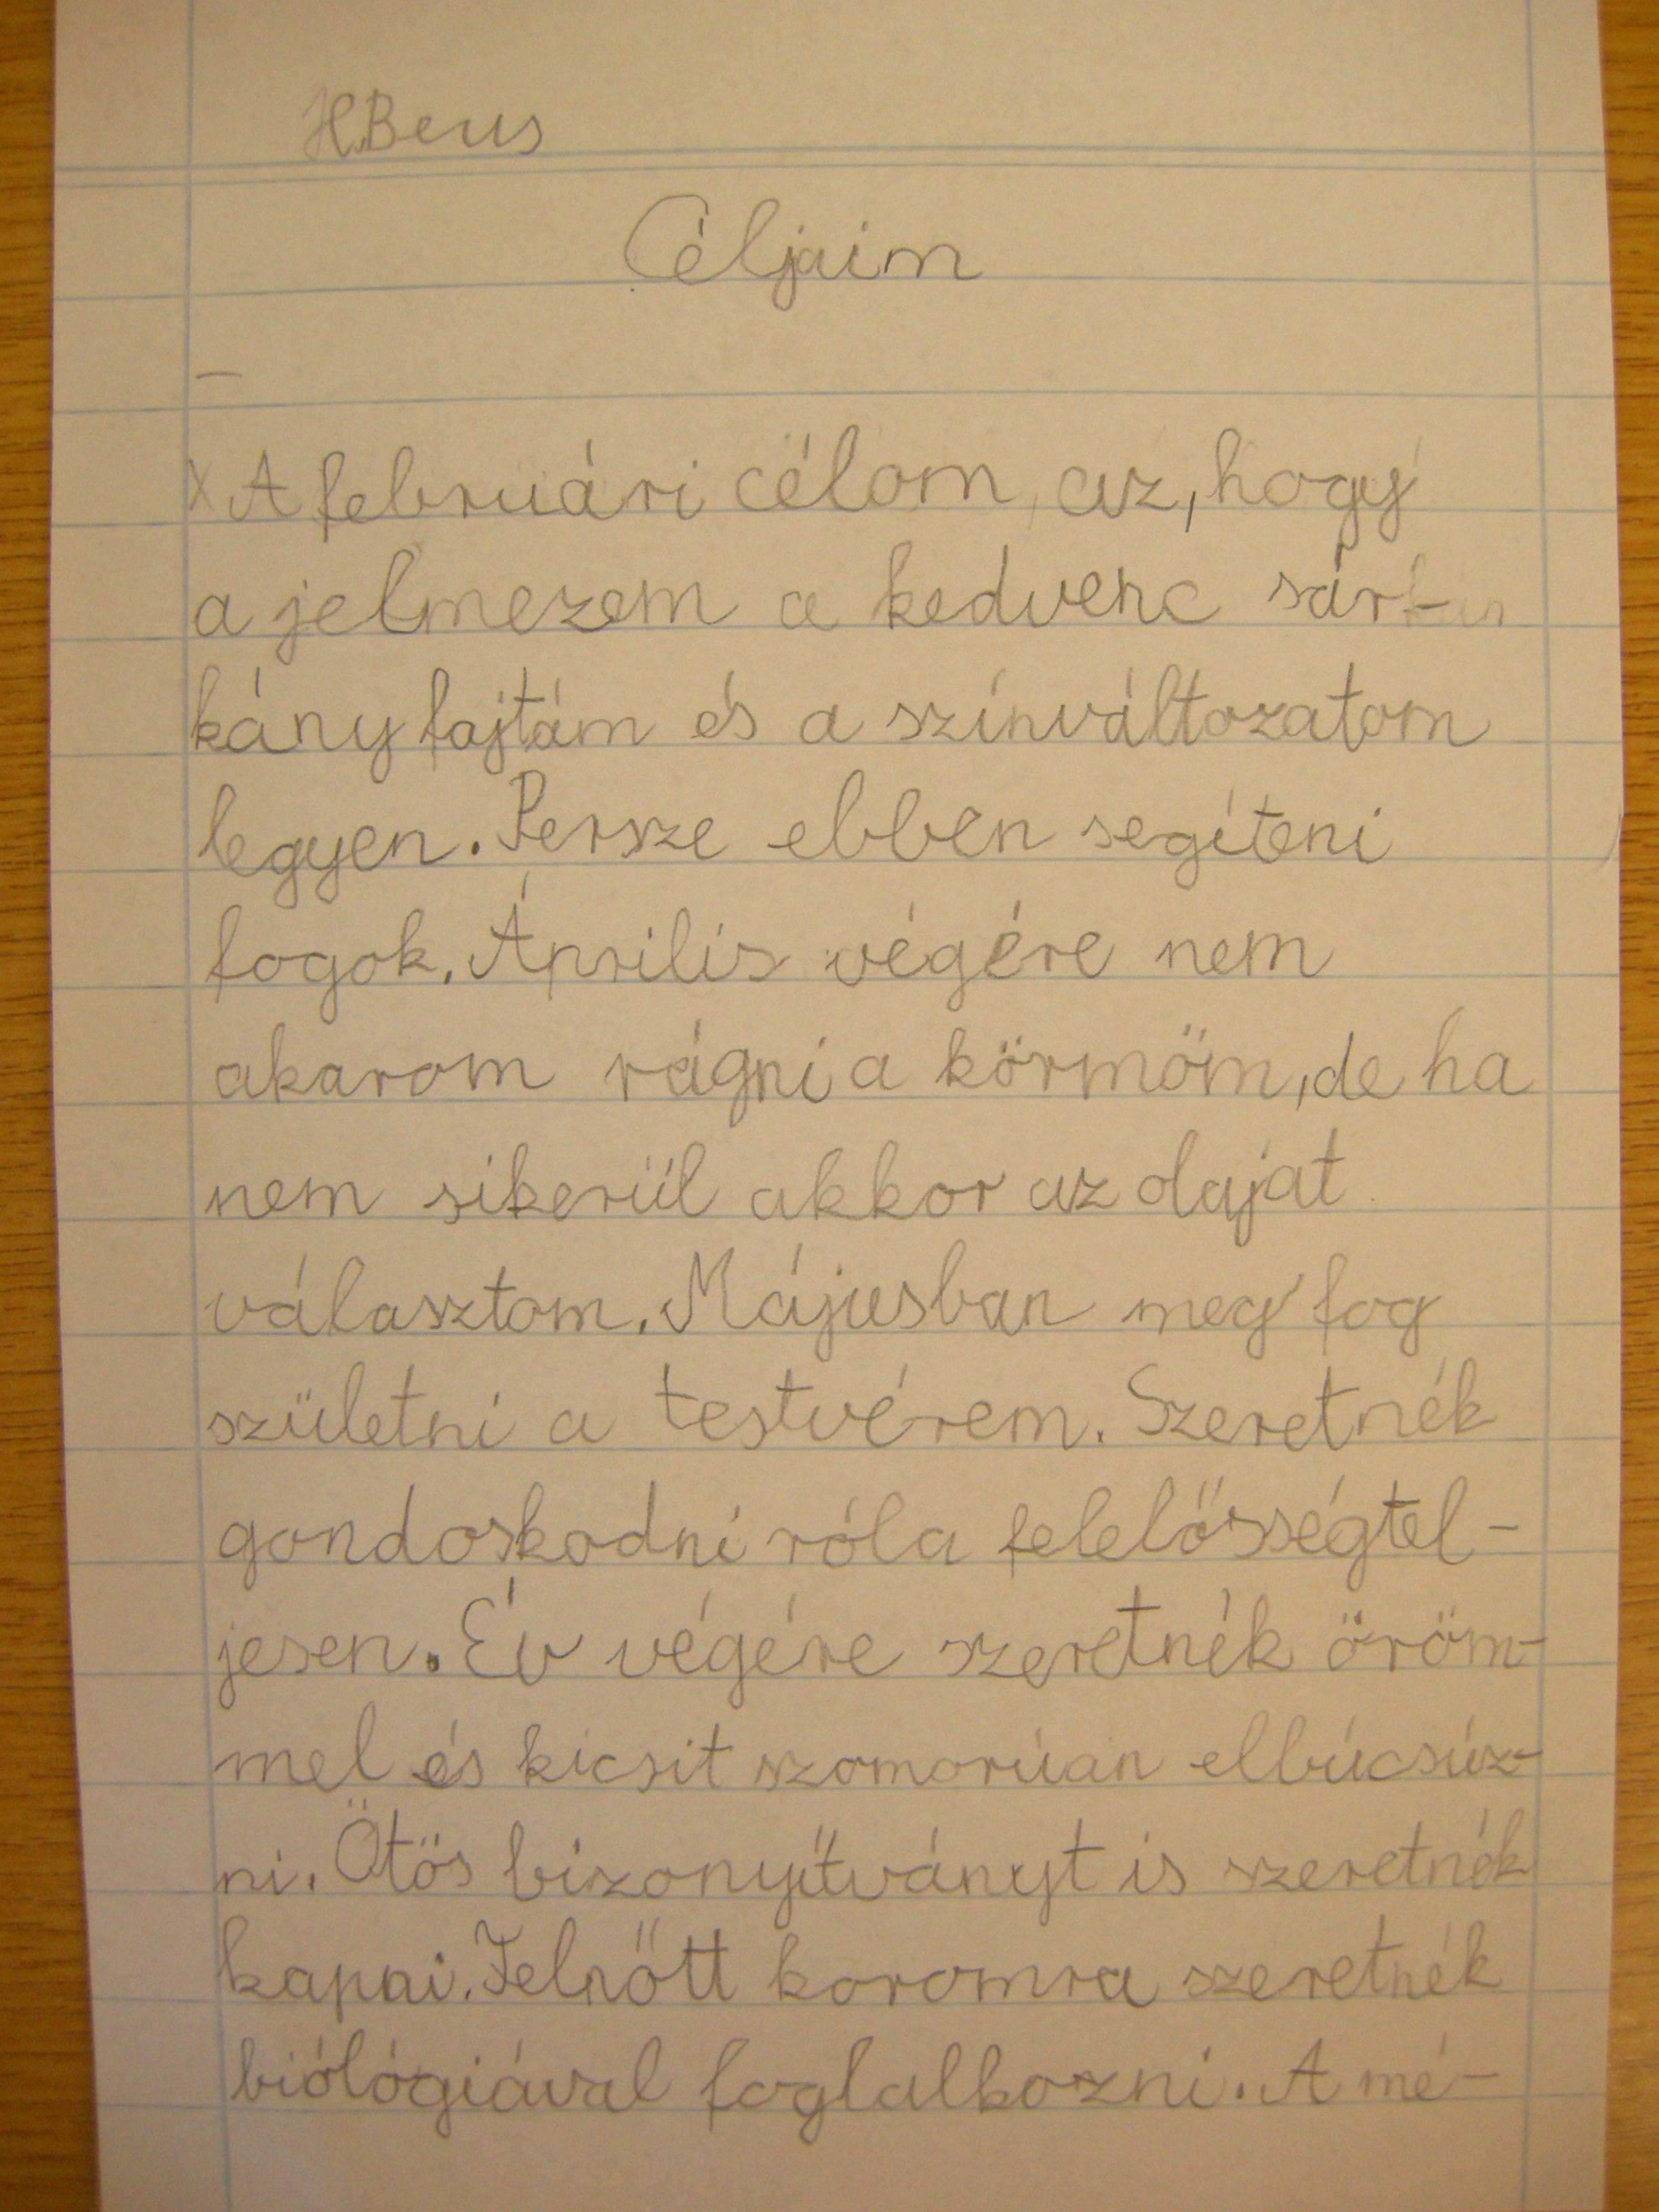 H.Beus
Céljaim
X A februári célom az, hogy
a jelmezem a kedvenc sár-
kány fajtám és a színváltozatom
legyen. Persze ebben segíteni
fogok. Április végére nem
akarom rágni a körmöm, de ha
nem sikerül akkor az olajat
választom. Májusban meg fog
születni a testvérem. Szeretnék
gondoskodni róla felelősségtel-
jesen. Év végére szeretnék öröm-
mel és kicsit szomorúan elbúcsúz-
ni. Ötös bizonyítványt is szeretnék
kapni. Felnőtt koromra szeretnék
biólógiával foglalkozni. A mé-